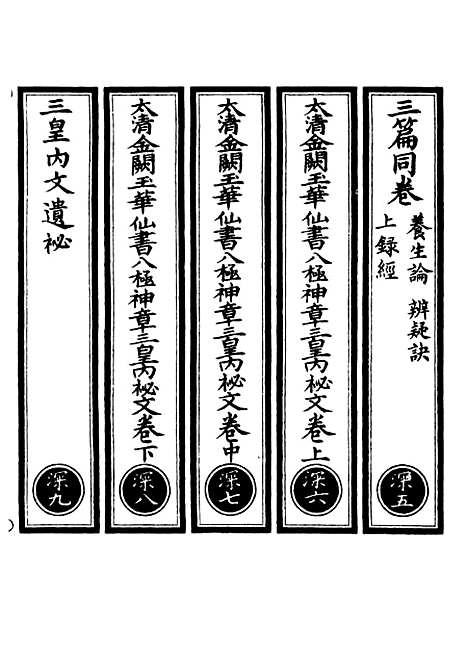 三篇同卷
養生論　辨疑訣
上録經
深五
太清金闕玉華仙書八極神章三皇內秘文卷上
深六
太清金闕玉華仙書八極神章三皇內秘文卷中
深七
太清金闕玉華仙書八極神章三皇內秘文卷下
深八
三皇內文遺祕
深九